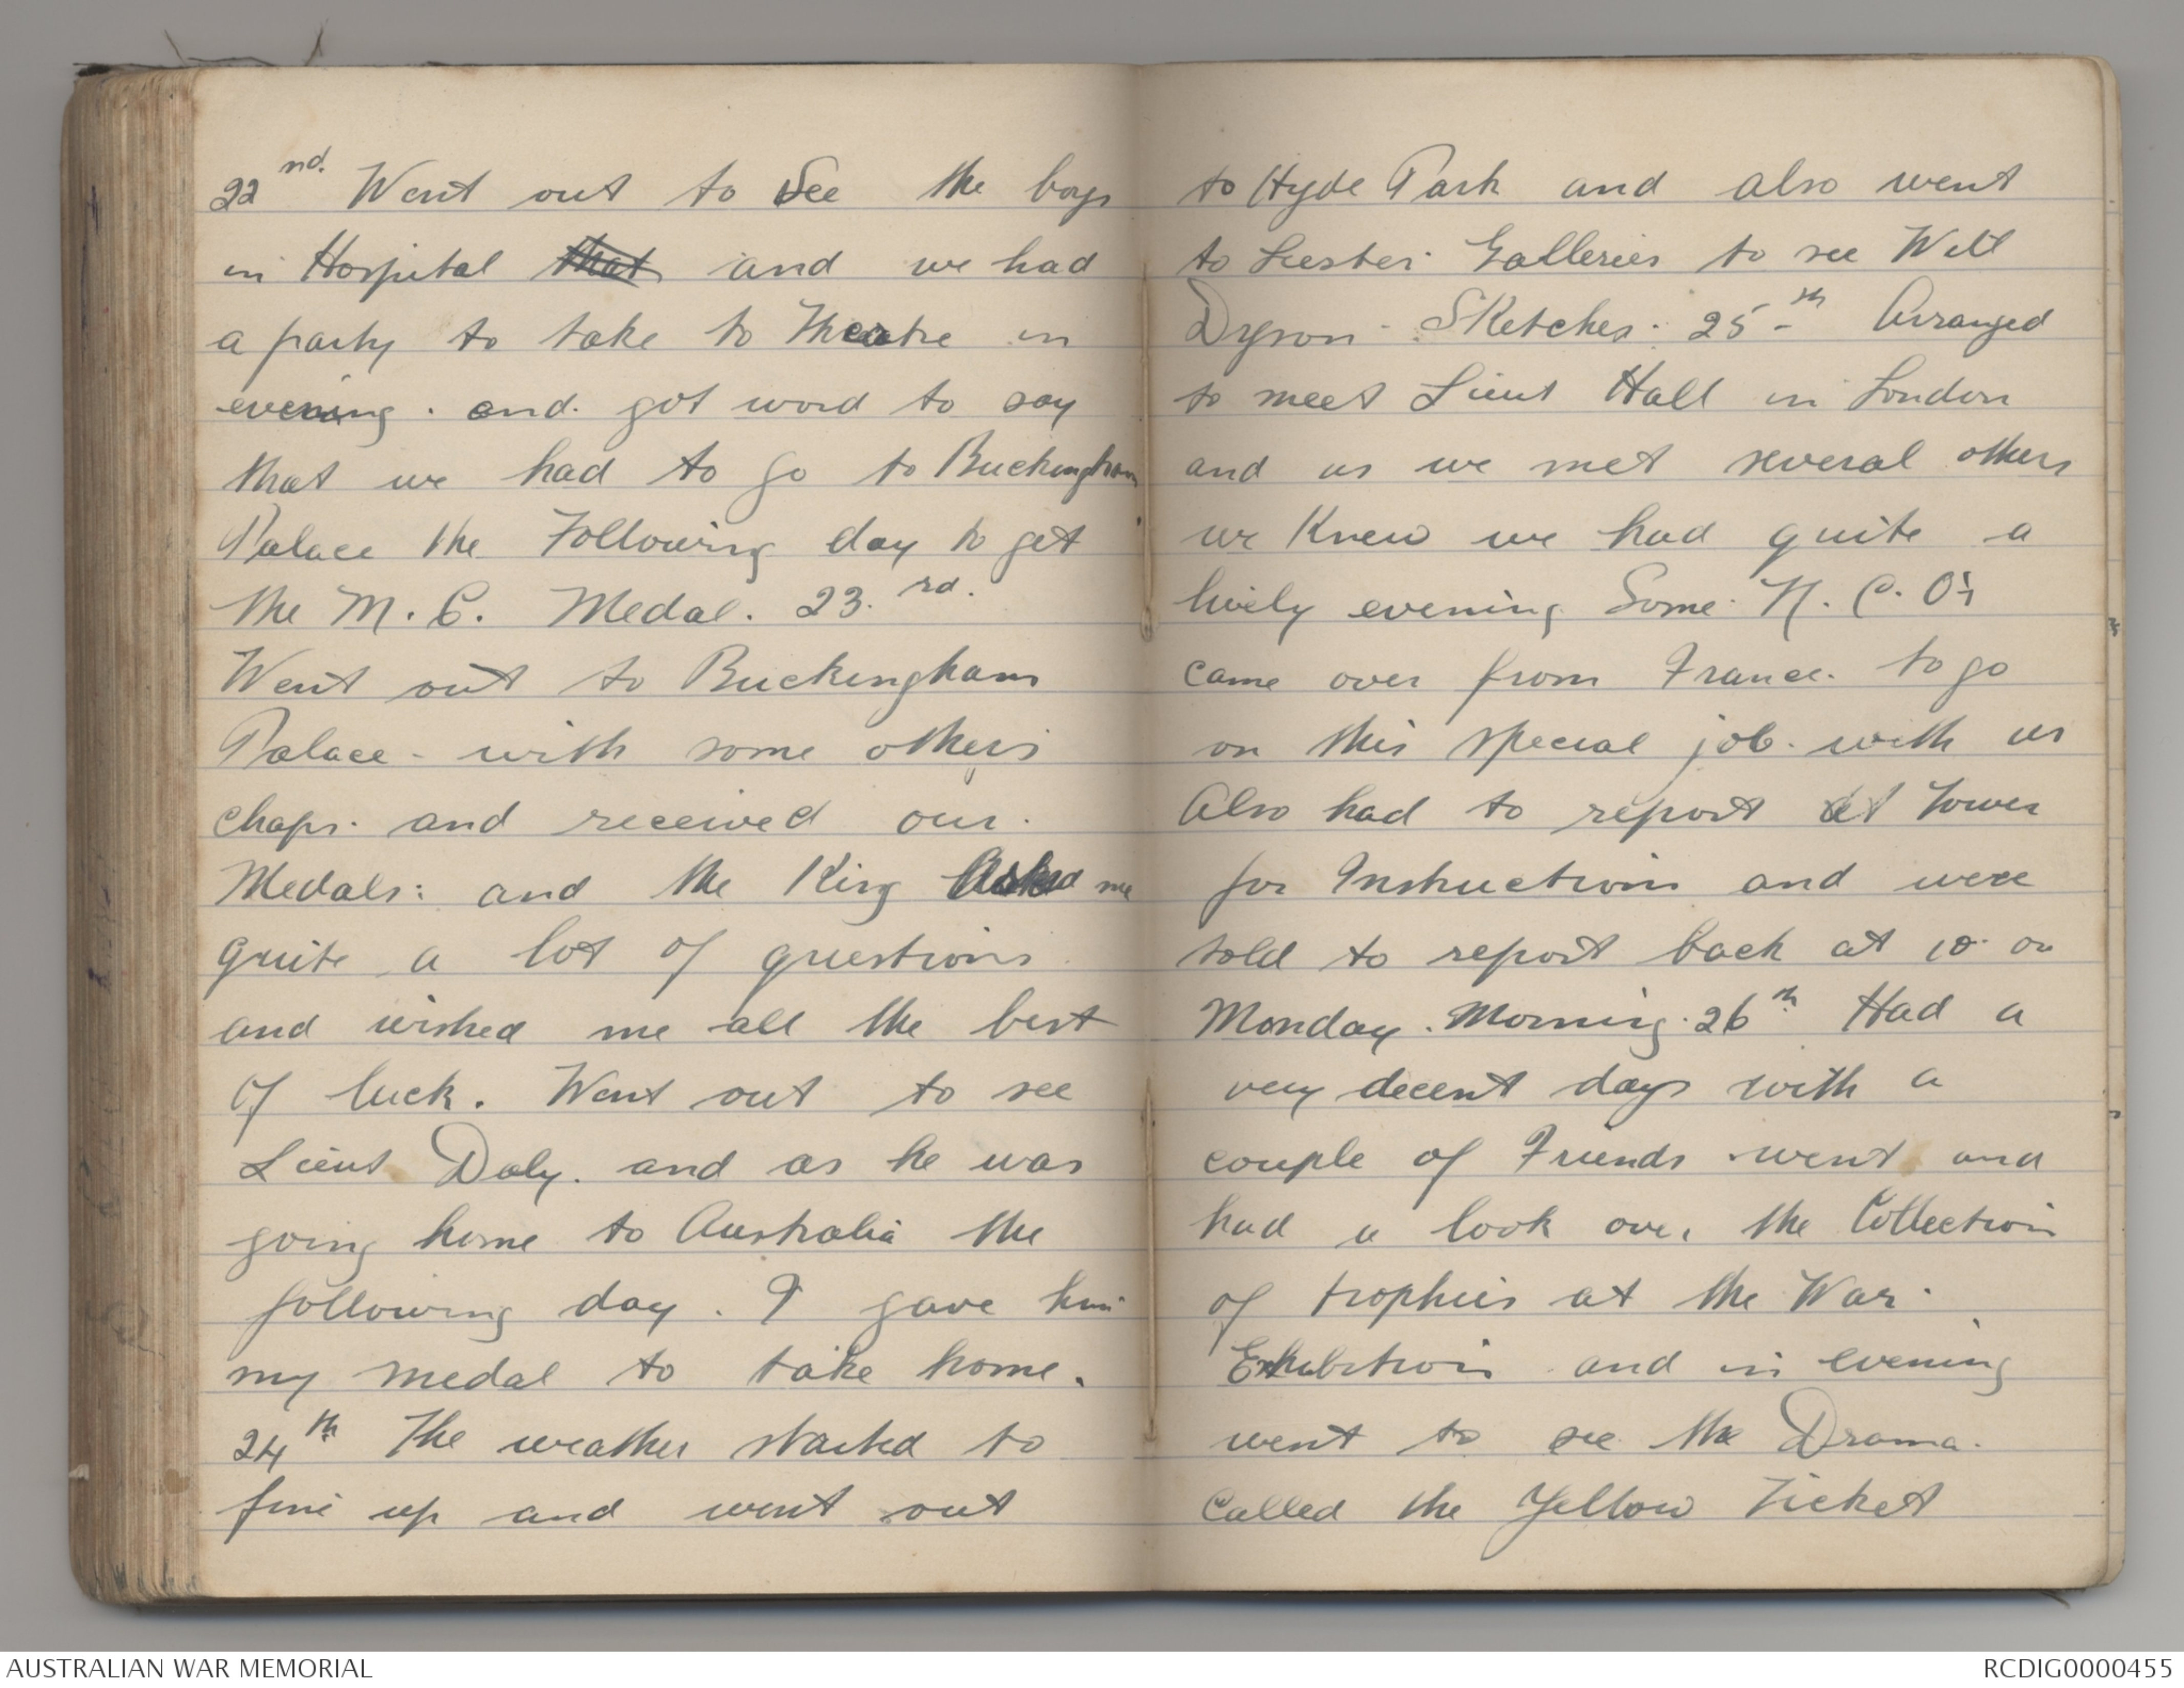 22nd. Went out to See the boys
in Hospital that and we had
a party to take to Theatre in
evening. and. got word to say
that we had to go to Buckingham
Palace the Following day to get
the M. C. Medal. 23.rd.
Went out to Buckingham
Palace - with some others
chaps. and received our.
Medals: and the King Asked me
quite a lot of questions
and wished me all the best
of luck. Went out to see
Lieut Daly. and as he was
going home to Australia the
following day. I gave him
my medal to take home.
24th The weather started to
fine up and went out
to Hyde Park and also went
to Leester Galleries to see Will
Dyson Sketches. 25th Arranged
to meet Lieut Hall in London
and as we met several others
we Knew we had quite a
lively evening Some N. C. O's
came over from France. to go
on this special job. with us
Also had to report at Tower
for Instructions and were
told to report back at 10 on
Monday. Morning. 26th Had a
very decent days with a
couple of Friends went and
had a look over the Collection
of trophies at the War.
Exhibition and in evening
went to see the Drama.
Called the Yellow Ticket
AUSTRALIAN WAR MEMORIAL
RCDIG0000455